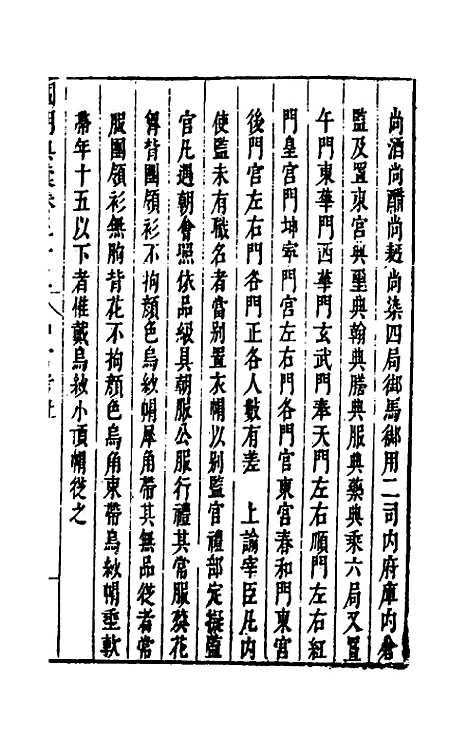 尚酒尚醋尚麪尚染四局御馬御用二司内府庫内倉
監及置東宮典璽典翰典膳典服典藥典乘六局又置
午門東華門西華門玄武門奉天門左右順門左右紅
門皇宮門坤寧門宮左右門各門官東宮春和門東宮
後門宮左右門各門正各人數有差　上諭宰臣凡内
使監未有職名者當别置衣帽以别監官禮部定擬監
官凡遇朝會照依品級具朝服公服行禮其常服葵花
胷背團領衫不拘顔色烏紗帽犀角帶其無品從者常
服團領衫無胸背花不拘顔色烏角束帶烏紗帽垂軟
帶年十五以下者惟戴烏紗小頂帽從之
國朝典彚卷之